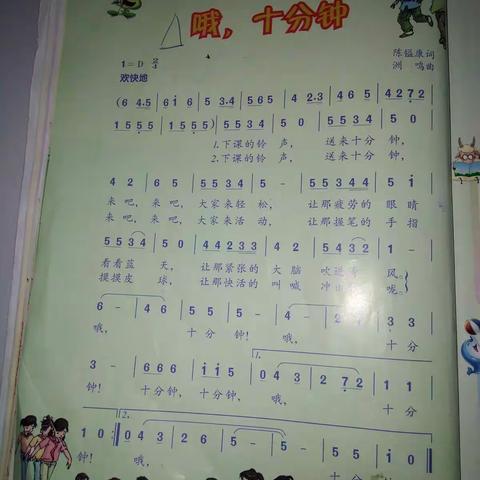 哦，十分钟
1=D 2/4
陈镒康词
欢快地
洲 鸣曲
(6 4.5 | 6 i 6 | 5 3.4 | 5 6 5 | 4 2.3 | 4 6 5 | 4 2 7 2 |
1 5 5 5 | 1 5 5 5) | 5 5 3 4 | 5 0 | 5 5 3 4 | 5 0 |
1.下课的铃 声， 送来十分 钟，
2.下课的铃 声， 送来十分 钟，
4 2 | 6 5 | 5 5 3 4 | 5 - | 5 5 3 4 4 | 5 i |
来 吧，来 吧，大家来轻 松， 让那疲劳的 眼 睛
来 吧，来 吧，大家来活 动， 让那握笔的 手 指
5 5 3 4 | 5 0 | 4 4 2 3 3 | 4 2 | 5 4 3 2 | 1 - |
看看蓝 天， 让那紧张的 大 脑 吹进 风。
摸摸皮 球， 让那快活的 叫 喊 冲出 咙。
6 - | 4 6 | 5 5 | 5 - | 4 - | 2 | 3 3 |
哦， 十 分 钟！ 哦， 十 分
1.
3 - | 6 6 6 | i i 5 | 0 4 3 | 2 7 2 | 1 1 |
钟！ 十分钟，十分钟， 哦， 十 分
2.
1 0 :| 0 4 3 | 2 6 | 5 - | 5 - | 5 5 | i 0 ||
钟！ 哦，